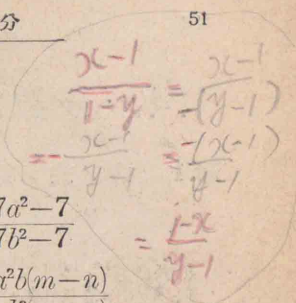 分 51
x-1/1-y = x-1/-(y-1)
=- x-1/y-1 = -(x-1)/y-1
= 1-x/y-1
7a²—7
7b²—7
a²b(m—n)